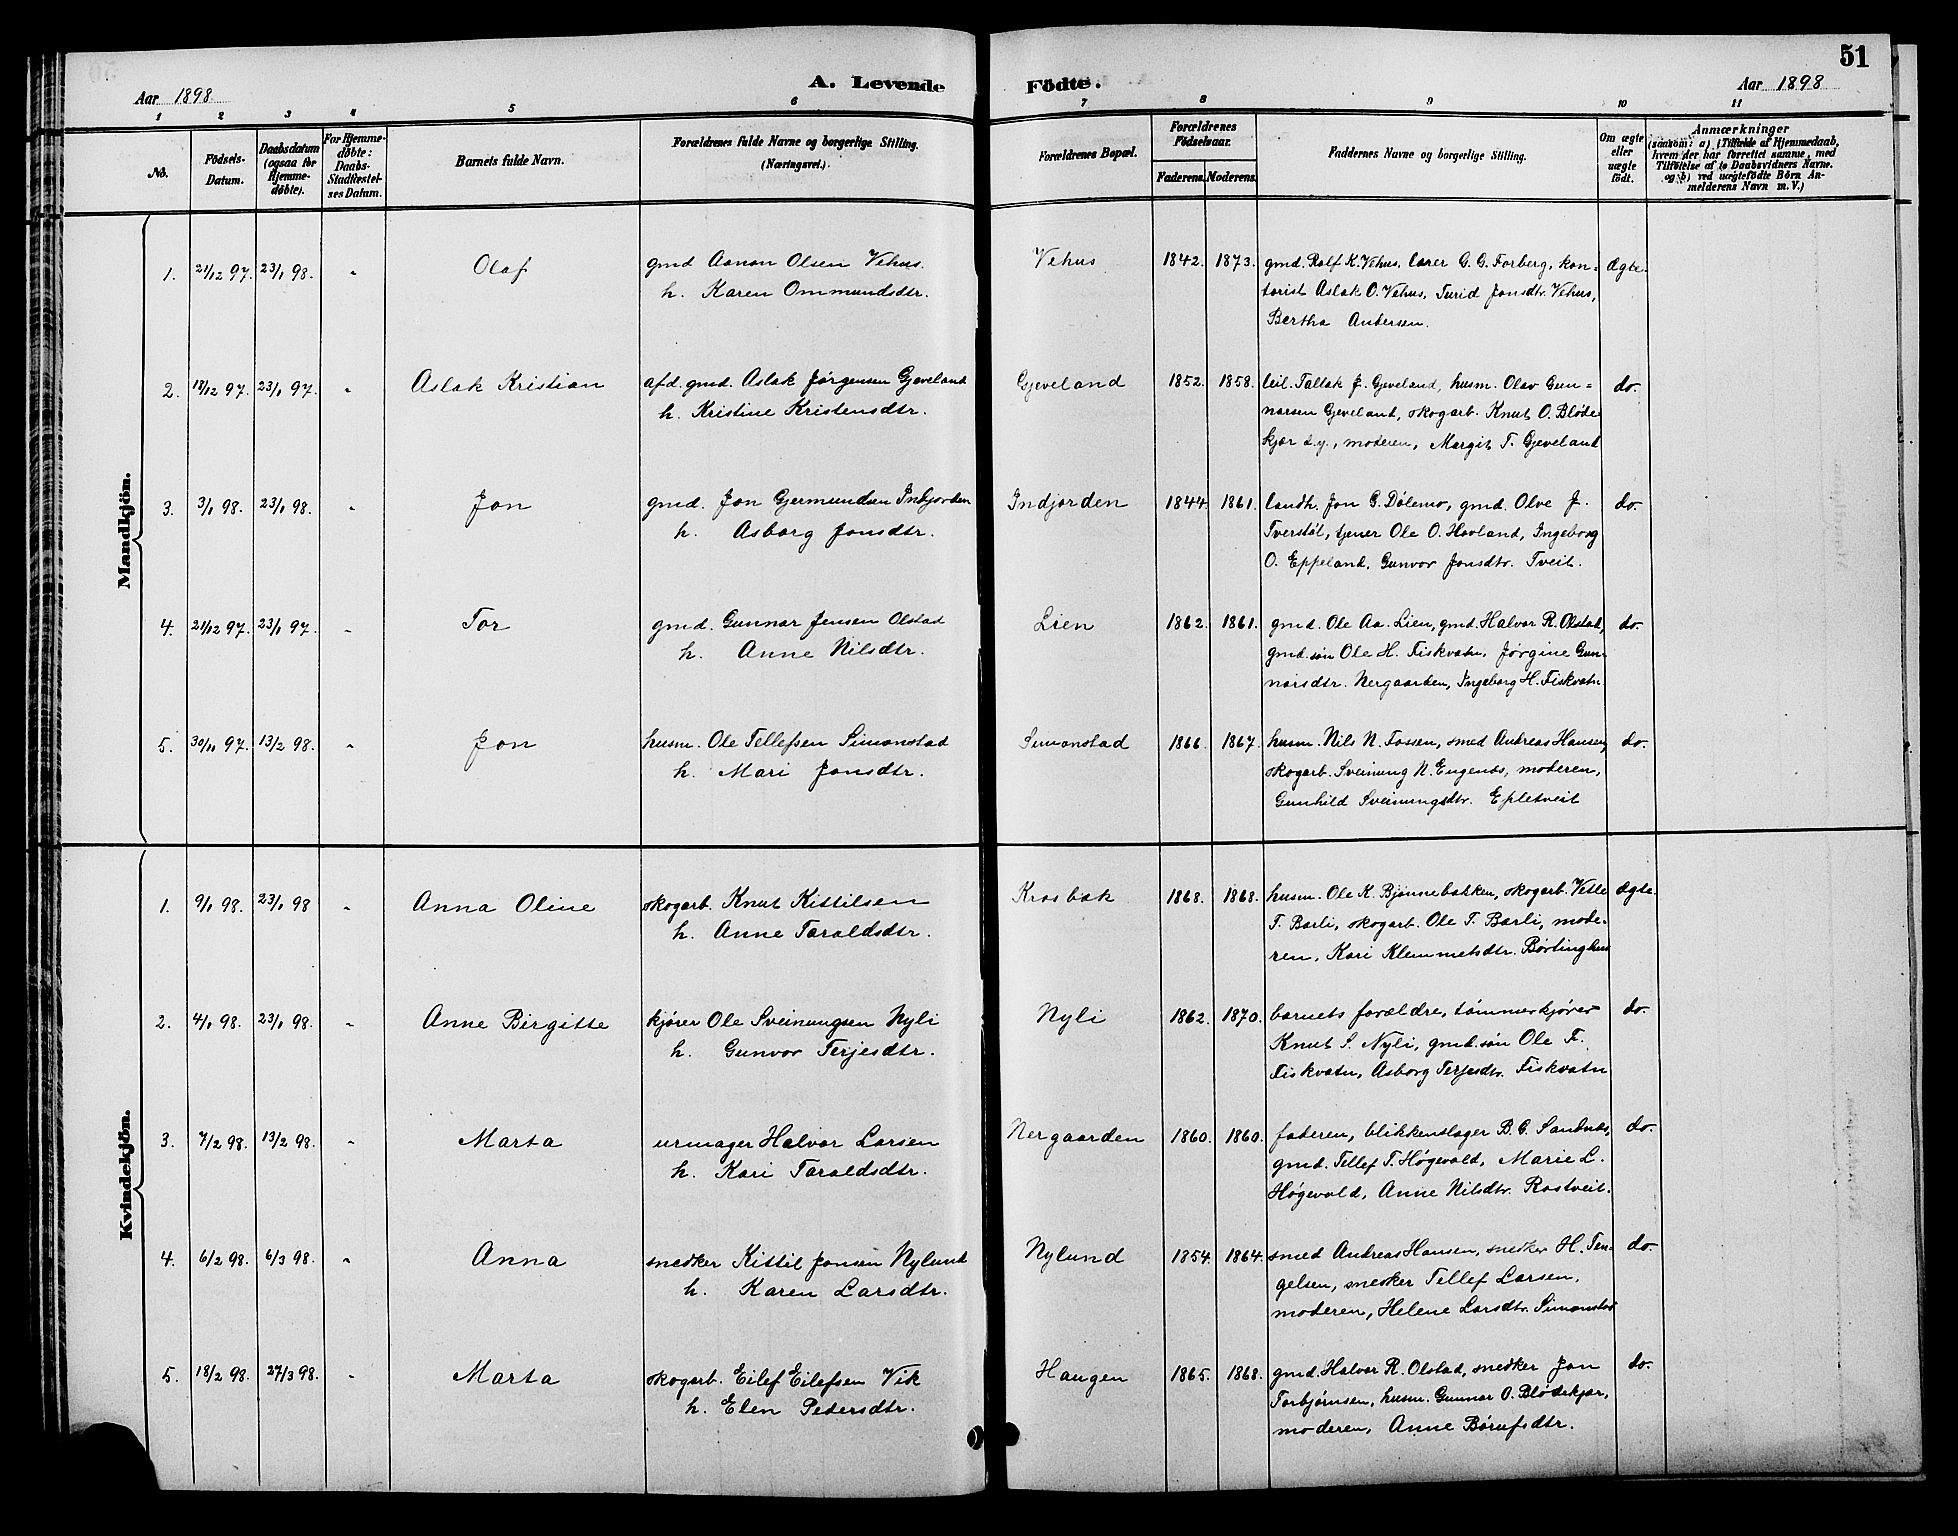 51
A. Levende Födte.
Aar 1898
Aar 1898
1 2 3 4 5 6 7 8 9 10 11
No.
Födsels-Datum.
Daabsdatum (ogsaa for Hjemme-döbte).
For Hjemme-döbte: Daabs-Stadfæstel-ses Datum.
Barnets fulde Navn.
Forældrenes fulde Navne og borgerlige Stilling. (Næringsvei.)
Forældrenes Bopæl.
Forældrenes Födselsaar.
Faderens. Moderens.
Faddernes Navne og borgerlige Stilling.
Om ægte eller uægte födt.
Anmærkninger
(saasom: a) i Tilfælde af Hjemmedaab,
hvem der har forrettet samme, med
Tilföielse af to Daabsvidners Navne.
og b) ved uægtefödte Börn An-
melderens Navn m. V.)
Mandkjön.
1. 21/12 97. 23/1 98. " Olaf gmd Aanon Olsen Vehus. Vehus 1842. 1873. gmd. Rolf K. Vehus, lærer G. G. Forberg, kon= ægte.
h. Karen Ommundsdtr. torist Aslak O. Vehus, Turid Jonsdtr. Vehus,
Bertha Andersen.
2. 18/12 97. 23/1 97. " Aslak Kristian afd. gmd. Aslak Jørgensen Gjeveland Gjeveland 1852. 1858. leil. Tallak J. Gjeveland, husm. Olav Gun= do.
h. Kristine Kristensdtr. narsen Gjeveland, skogarb. Knut O. Bløde
kjær d.y., moderen, Margit T. Gjeveland
3. 3/1 98. 23/1 98. " Jon gmd. Jon Gjermundsen Indjorden Indjorden 1844. 1861. landh. Jon G. Dølemo, gmd. Olve J. do.
h. Asborg Jonsdtr. Tverstøl, tjener Ole O. Hovland, Ingeborg
O. Eppeland, Gunvor Jonsdtr. Tveit.
4. 21/12 97. 23/1 97. " Tor gmd. Gunnar Jensen Olstad Lien 1862. 1861. gmd. Ole Aa. Lien, gmd. Halvor R. Olstad, do.
h. Anne Nilsdtr. gmd. søn Ole H. Fiskvatn, Jørgine Gun-
narsdtr. Nergaarden, Ingeborg H. Fiskvatn
5. 30/11 97. 13/2 98. " Jon husm. Ole Tellefsen Simonstad Simonstad 1866. 1867. husm. Nils N. Fossen, smed Andreas Hansen, do.
h. Mari Jonsdtr. skogarb. Sveinung N. Engenes, moderen,
Gunhild Sveinungsdtr. Epletveit
Kvindekjön.
1. 9/1 98. 23/1 98 " Anna Oline skogarb. Knut Kittilsen Krosbæk 1868. 1868. husm. Ole K. Bjønnebakken, skogarb. Vetle ægte.
h. Anne Taraldsdtr. T. Barli, skogarb. Ole T. Barli, mode-
ren, Kari Klemmetsdtr. Børtinghus
2. 4/1 98. 23/1 98. " Anne Birgitte kjører Ole Sveinungsen Nyli Nyli 1862. 1870. barnets forældre, tømmerkjører do.
h. Gunvor Terjesdtr. Knut S. Nyli, gmd. søn Ole F.
Fiskvatn, Asborg Terjesdtr. Fiskvatn
3. 7/2 98. 13/2 98. " Marta urmager Halvor Larsen Nergaarden 1860. 1860. faderen, blikkenslager B. G. Sandnes, do.
h. Kari Taraldsdtr. gmd. Tellef T. Høgevold, Marie L.
Høgevold, Anne Nilsdtr. Rostveit.
4. 6/2 98. 6/3 98. " Anna snedker Kittil Jonsen Nylund Nylund 1854. 1864. smed Andreas Hansen, snedker H. Ten- do.
h. Karen Larsdtr. gelsen, snedker Tellef Larsen,
moderen, Helene Larsdtr. Simonstad
5. 18/2 98. 27/3 98. " Marta skogarb. Eilef Eilefsen Vik Haugen 1865. 1868. gmd. Halvor R. Olstad, snedker Jon do.
h. Elen Pedersdtr. Torbjørnsen, husm. Gunnar O. Blødekjær,
moderen, Anne Børufsdtr.